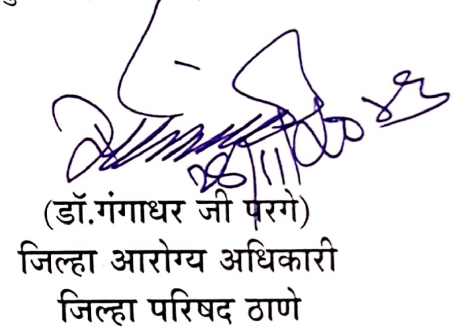 (डॉ.गंगाधर जी परगे)
जिल्हा आरोग्य अधिकारी
जिल्हा परिषद ठाणे